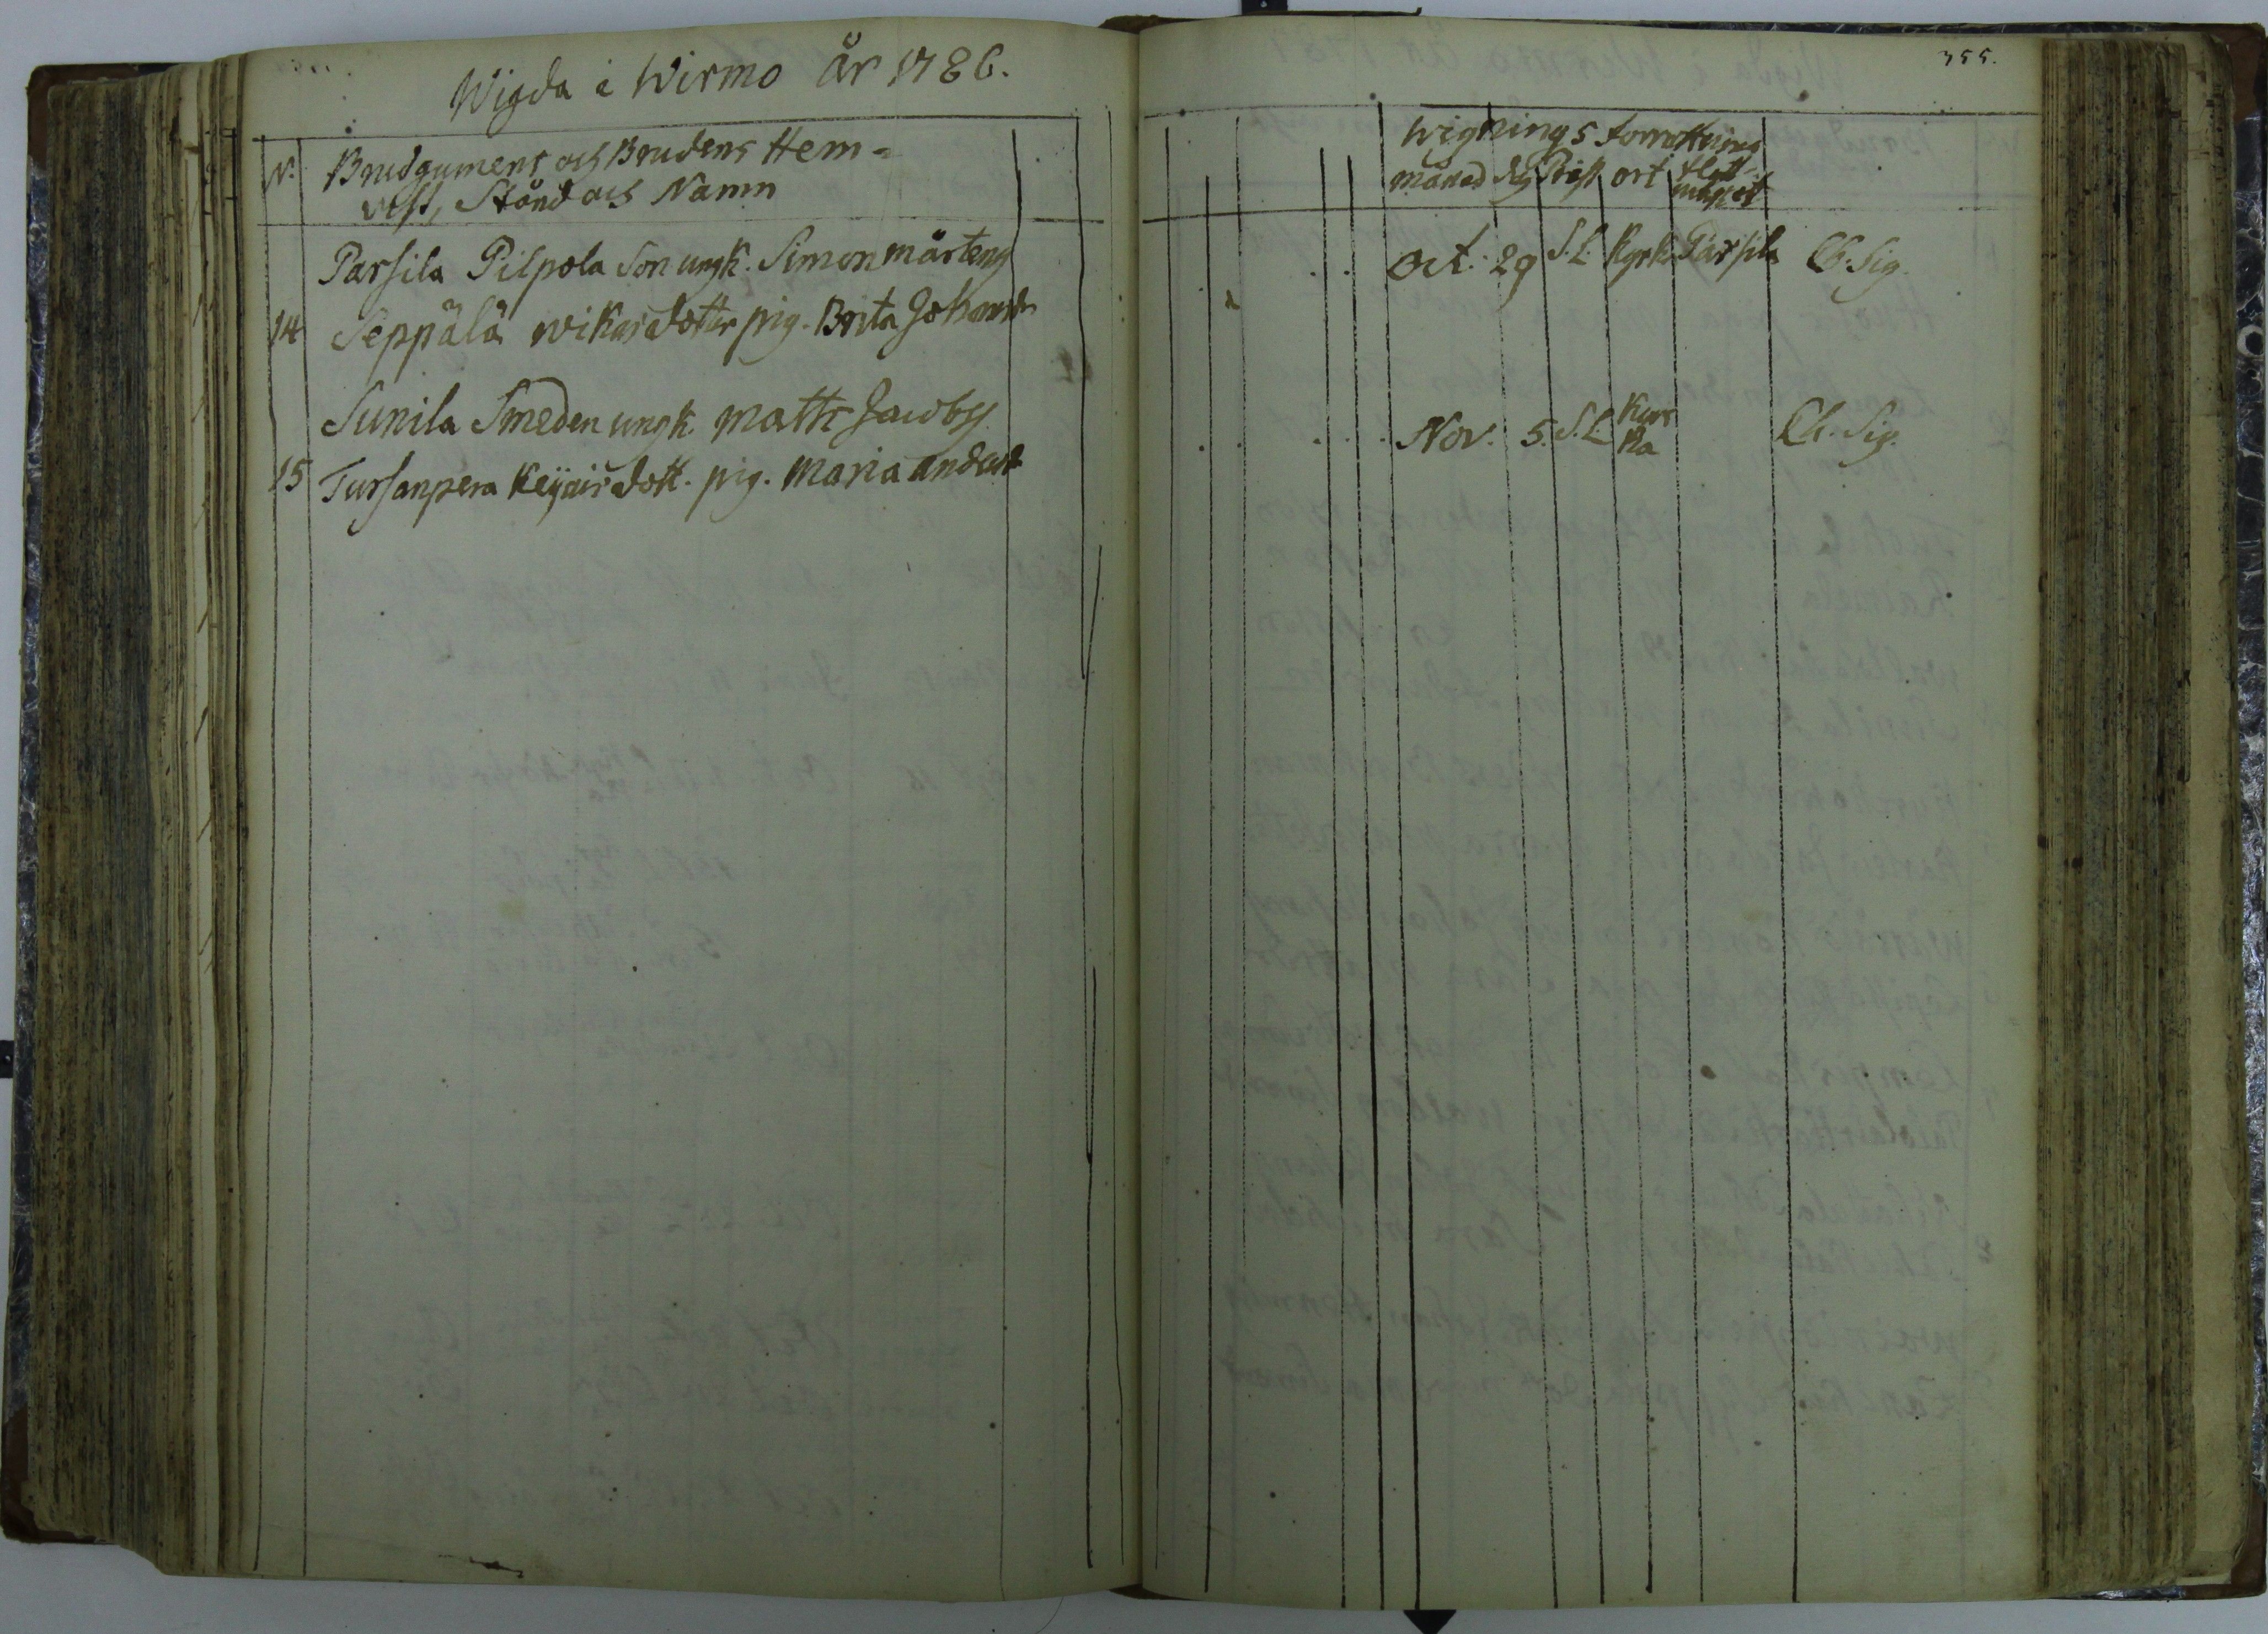 Wigda i Wirmo År 1786.
N. Brudgumens och Brudens Hem=
vist, Stånd och Namn
Parsila Pilpola Son ungk. Simon Mårtens
14 Seppälä wikar dotter pig. Brita Johansdr
Sunila Smeden ungk. Matts Jacobs
15 Tursanpera Keijais dott. pig. Maria Andersd
355.
Wignings forrettning
månad dag Präst ort
Oct. 29 S.L. Kyrk. Parsila Ch. Sig.
Nov. 5. S.L. Kyr
ka Ch. Sig.